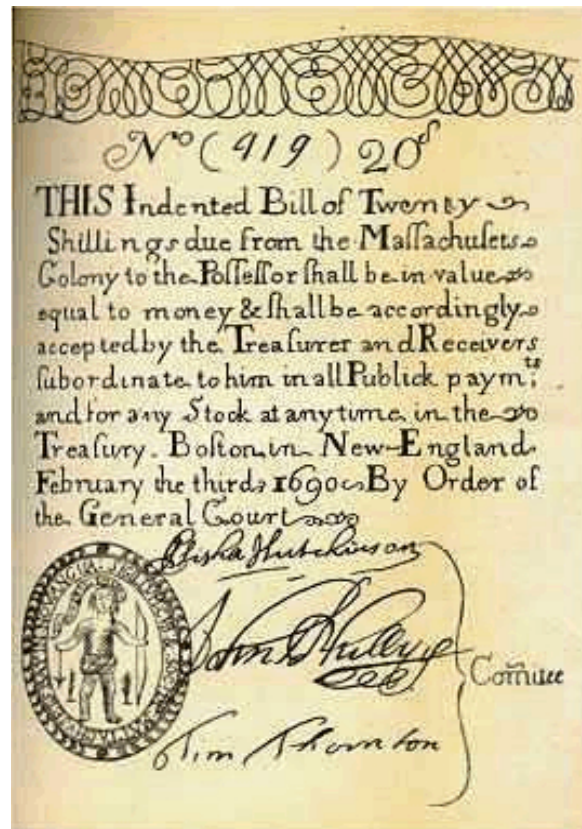 Nº (919) 20ˢ
THIS Indented Bill of Twenty
Shillings due from the Maſſachuſets
Colony to the Poſſeſſor ſhall be in value
equal to money & ſhall be accordingly
accepted by the Treaſurer and Receivers
ſubordinate to him in all Publick paymᵗˢ
and for any Stock at any time in the
Treaſury. Boſton in New-England
February the third 1690 By Order of
the General Court
Elisha Hutchinson
John
Comᵗᵉᵉ
Tim Thornton